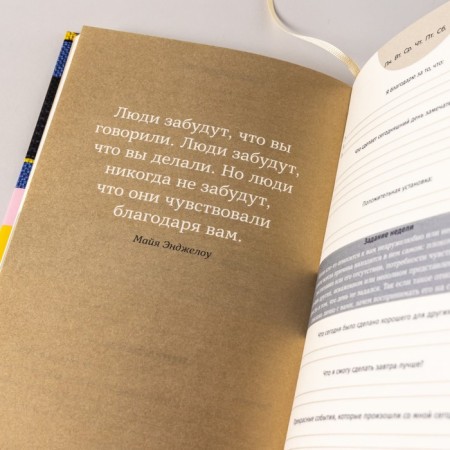 Люди забудут, что вы
говорили. Люди забудут,
что вы делали. Но люди
никогда не забудут,
что они чувствовали
благодаря вам.
Майя Энджелоу
Пн. Вт. Ср. Чт. Пт. Сб.
Я благодарю за то, что:
Что сделает сегодняшний день замечат
Положительная установка:
Задание недели
Что сегодня было сделано хорошего для других
Что я смогу сделать завтра лучше?
Прекрасные события, которые произошли со мной сегод